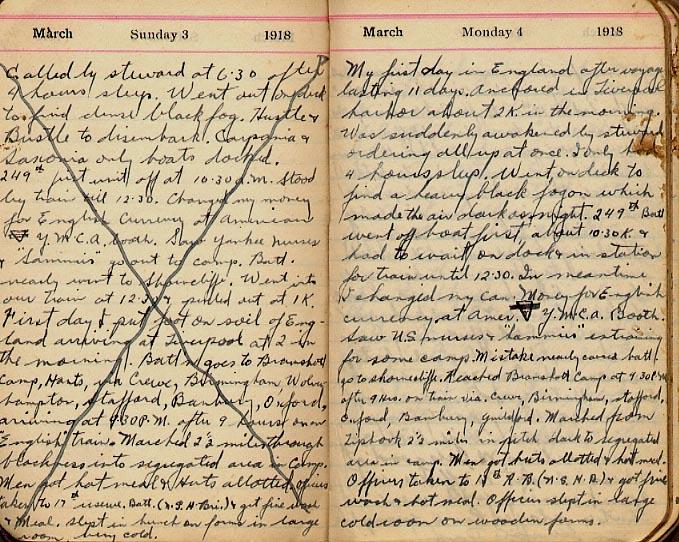 March Sunday 3 1918
Called by steward at 6.30 after
4 hours sleep. Went out on deck
to find dense black fog. Hustle &
Bustle to disembark. Carpania &
Saxonia only boats docked.
249th first unit off at 10.30 a.m. Stood
by train till 12.30. Changed my money
for English Currency at American
Y.M.C.A. booth. Saw Yankee nurses
& "Sammies" go out to camp. Batt.
nearly went to Shorncliffe. Went into
our train at 12.30 & pulled out at 1K.
First day I put foot on soil of Eng-
land arriving at Liverpool at 2 in
the morning. Battn goes to Bramshott
Camp, Hants, via Crewe, Birmingham, Wolver-
hampton, Stafford, Banbury, Oxford,
arriving at 9.30 P.M. after 9 hours on an
English train. Marched 2½ miles through
blackness into segregated area in Camp.
Men got hot meal & Huts allotted. Officers
taken to 17th reserve Batt. (N.S.H. Brig.) & got fine wash
& Meal. Slept in hunch on forms in large
room. Very cold.
March Monday 4 1918
My first day in England after voyage
lasting 11 days. Anchored in Liverpool
harbor about 2K in the morning.
Was suddenly awakened by steward
ordering all up at once. I only had
4 hours sleep. Went on deck to
find a heavy black fog on which
made the air dark as night. 249th Batt
went off boat first, about 10.30 K. &
had to wait on dock & in station
for train until 12.30. In meantime
I changed my Can. Money for English
currency at Amer. Y.M.C.A. Booth.
Saw U.S. nurses & "Sammies" entraining
for some camp. Mistake nearly caused batt.
go to Shorncliffe. Reached Bramshott Camp at 9.30 P.M.
after 9 Hrs. on train via. Crewe, Birmingham, Stafford,
Oxford, Banbury, Guildford. Marched from
Liphook 2½ miles in pitch dark to segregated
area in camp. Men got huts allotted & hot meal.
Officers taken to 17th R.B. (N.S.H.B.) & got fine
wash & hot meal. Officers slept in large
cold room on wooden forms.